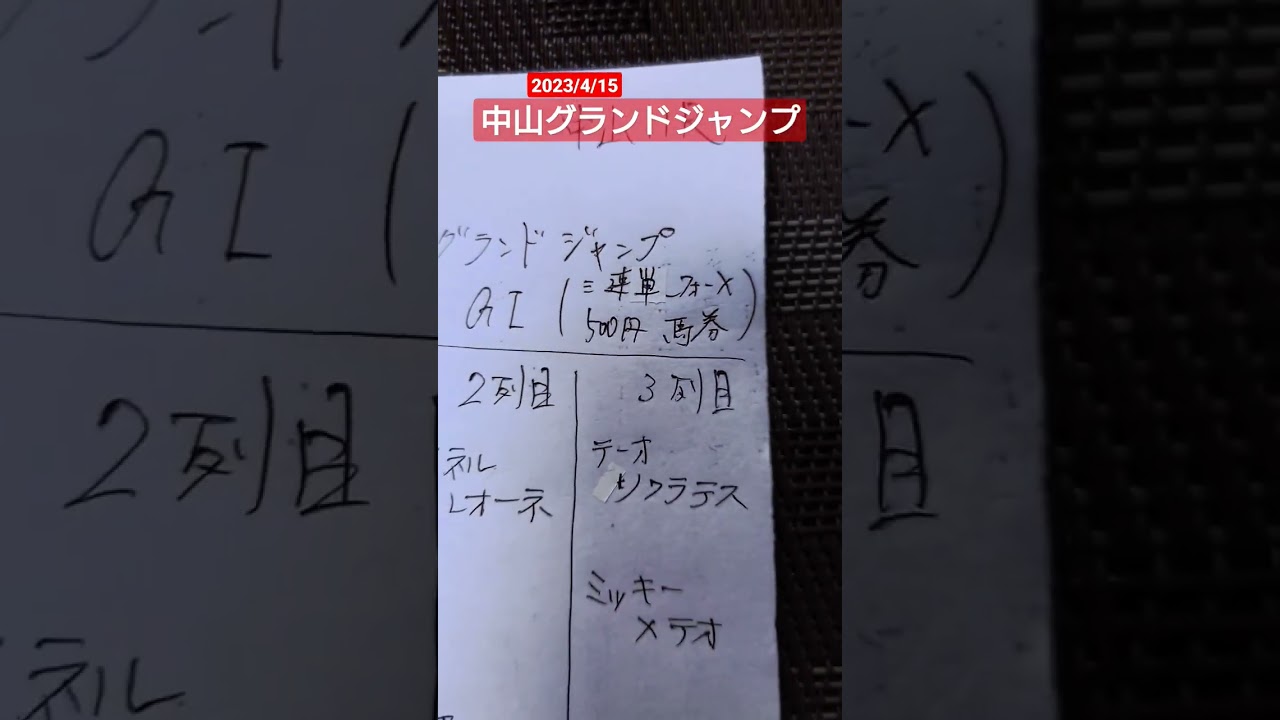 2023/4/15
中山グランドジャンプ
グランドジャンプ
GI (三連単フォーメ
500円 馬券)
2列目
3列目
ネル
レオーネ
テーオ
ソクラテス
ミッキー
メテオ